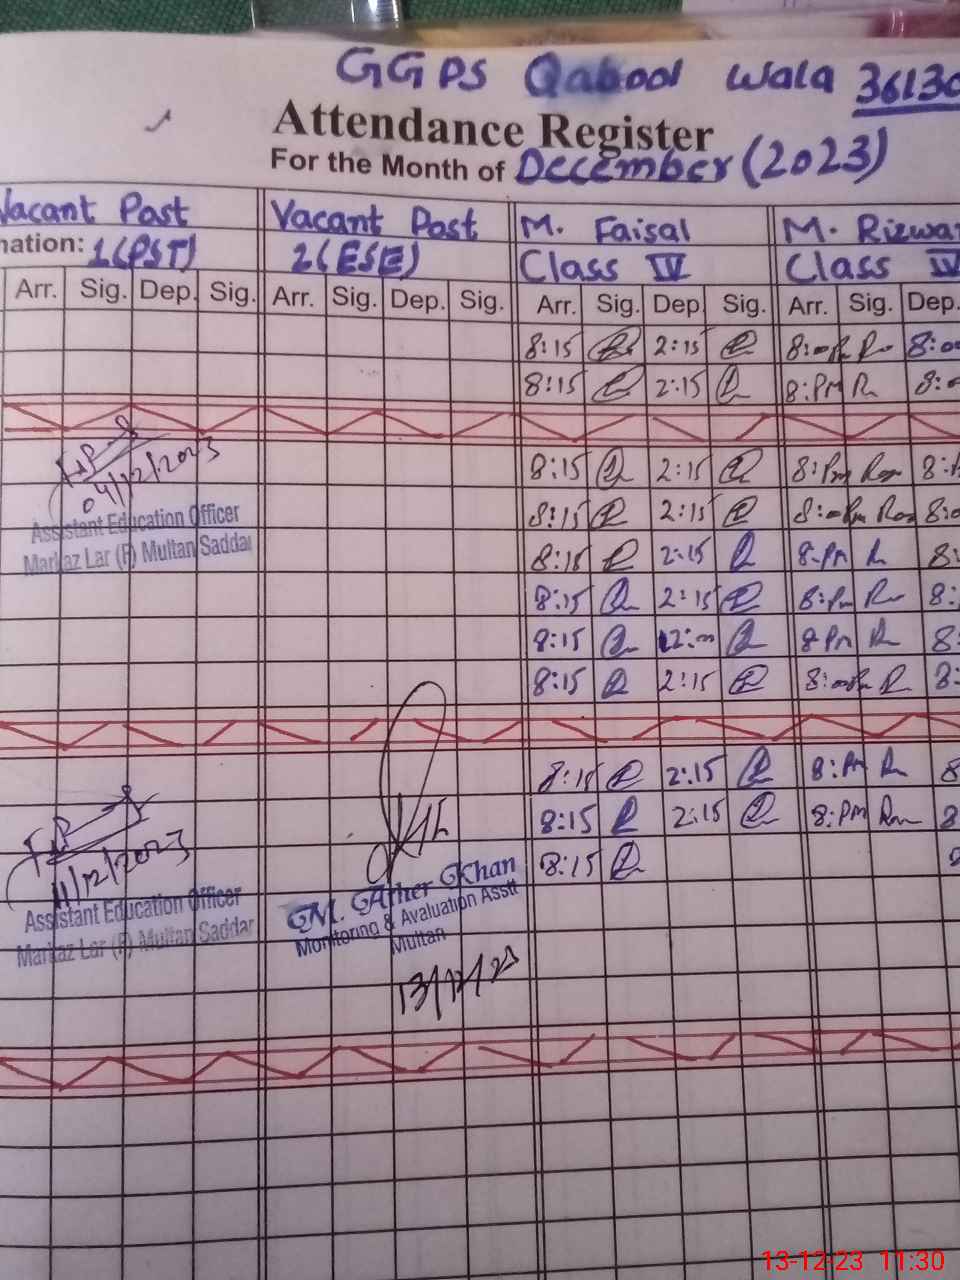 GGPS Qabool Wala 36130
Attendance Register
For the Month of December (2023)
Vacant Post Vacant Post M. Faisal M. Rizwa
nation: 1(PST) 2(ESE) Class IV Class IV
Arr. Sig. Dep. Sig. Arr. Sig. Dep. Sig. Arr. Sig. Dep. Sig. Arr. Sig. Dep.
8:15 2:15
8:15 2:15 8:PM
8:15 2:15 8:Pm
8:15 2:15
8:15 2:15 8-Pm
8:15 2:15 8:Pm
8:15 12:00 8 Pm
8:15 2:15
8:15 2:15 8:Pm
8:15 2:15 8:PM
8:15
04/12/2023
Assistant Education Officer
Markaz Lar (F) Multan Saddar
11/12/2023
Assistant Education Officer
Markaz Lar (F) Multan Saddar
M. Ather Khan
Monitoring & Avaluation Asstt
Multan
13/12/23
13-12-23 11:30